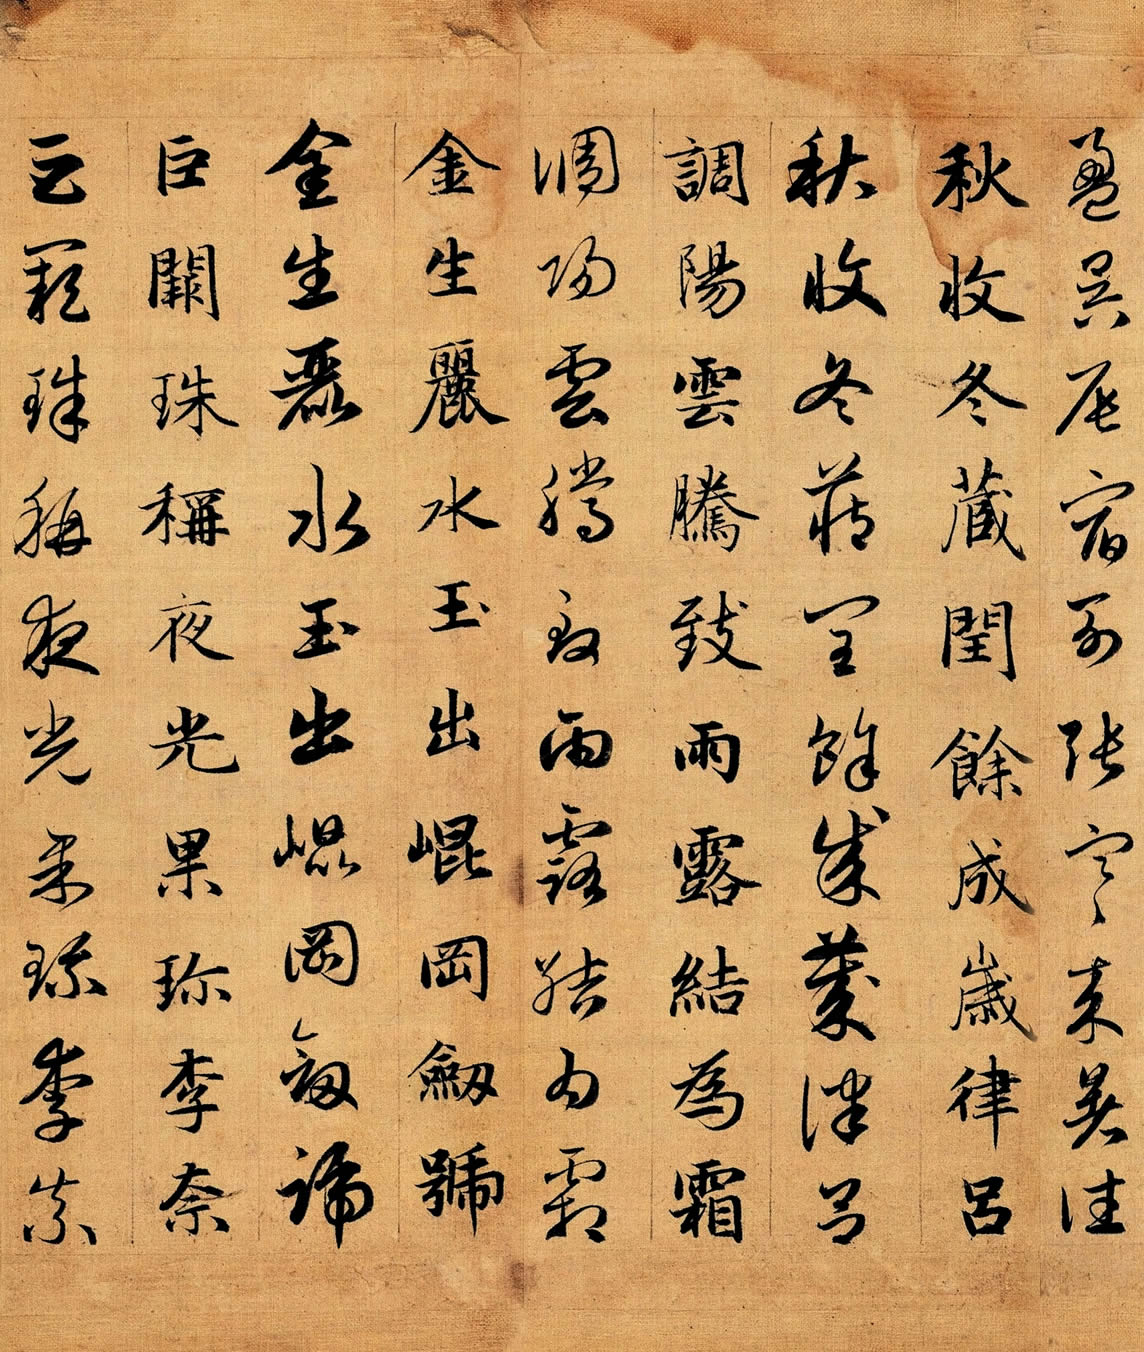 盈昃辰宿列張寒來暑往
秋收冬藏閏餘成歲律呂
秋收冬藏閏餘成歲律呂
調陽雲騰致雨露結為霜
調陽雲騰致雨露結為霜
金生麗水玉出崐岡劒號
金生麗水玉出崐岡劒號
巨闕珠稱夜光果珎李柰
巨闕珠稱夜光果珎李柰